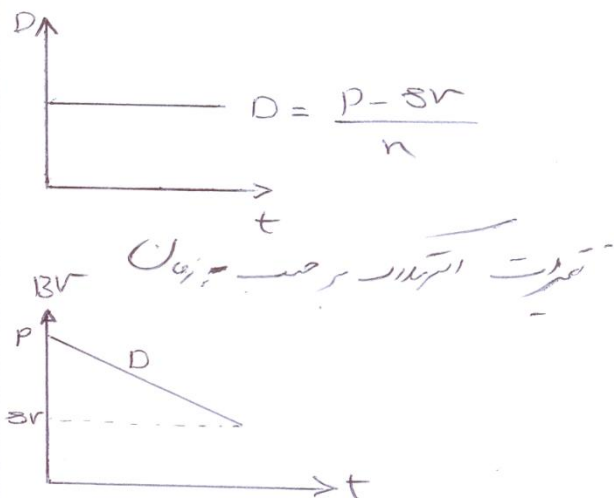 D
D = P - SV / n
t
تغییرات استهلاک بر حسب زمان
BV
P
D
SV
t